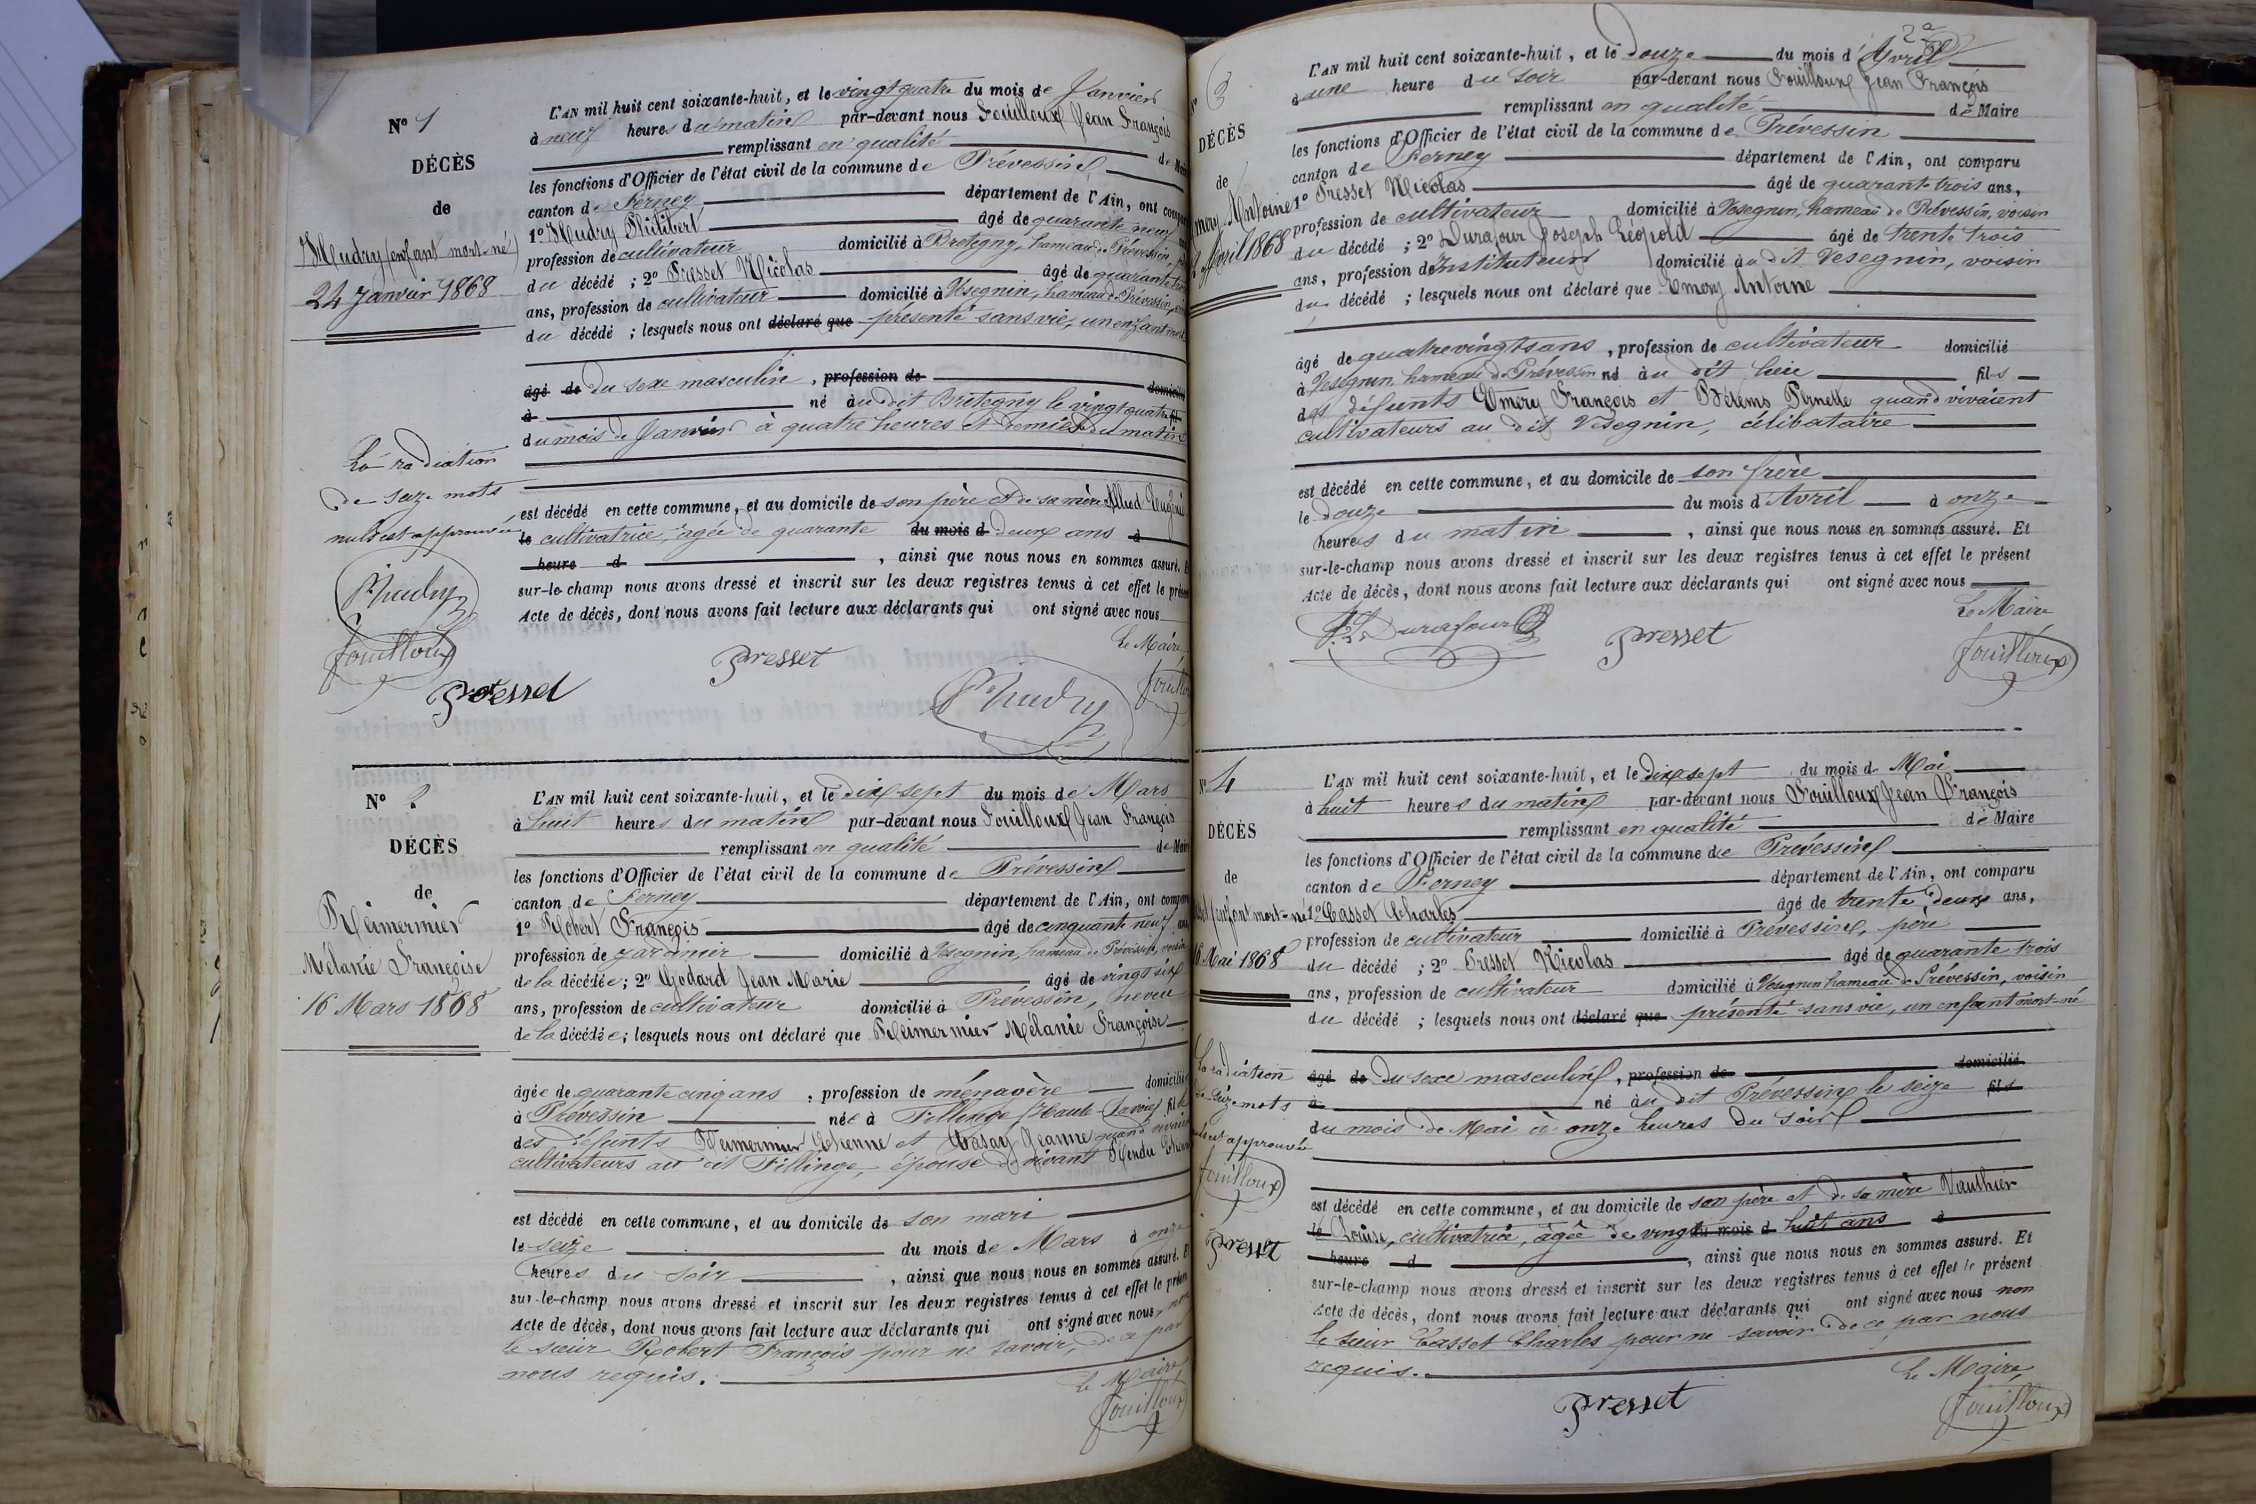 N° 1
DÉCÈS
de
Mudry (enfant mort-né)
24 Janvier 1868
L'AN mil huit cent soixante-huit, et le vingt quatre du mois de Janvier
à neuf heures du matin par-devant nous Fouilloux Jean François
remplissant en qualité de Maire
les fonctions d'Officier de l'état civil de la commune de Prévessin
canton de Ferney département de l'Ain, ont comparu
1° Mudry Philibert âgé de quarante neuf ans
profession de cultivateur domicilié à Bretegny, hameau de Prévessin,
du décédé ; 2° Presset Nicolas âgé de quarante trois
ans, profession de cultivateur domicilié à Vesegnin, hameau de Prévessin,
du décédé ; lesquels nous ont déclaré que présenté sans vie, un enfant
âgé de du sexe masculin, profession de domicilié
à né au dit Bretegny le vingt quatre fil
du mois de Janvier à quatre heures et demies du matin
La radiation
de seize mots
nuls est approuvée
P. Mudry
Fouilloux
Presset
est décédé en cette commune, et au domicile de son père et de sa mère Allod
le cultivatrice, agée de quarante du mois d deux ans à
heure d , ainsi que nous nous en sommes assuré. Et
sur-le-champ nous avons dressé et inscrit sur les deux registres tenus à cet effet le présent
Acte de décès, dont nous avons fait lecture aux déclarants qui ont signé avec nous
Le Maire,
Presset P. Mudry Fouilloux
N° 2
DÉCÈS
de
Heimermier
Mélanie Françoise
16 Mars 1868
L'AN mil huit cent soixante-huit, et le dix sept du mois de Mars
à huit heures du matin par-devant nous Fouilloux Jean François
remplissant en qualité de Maire
les fonctions d'Officier de l'état civil de la commune de Prévessin
canton de Ferney département de l'Ain, ont comparu
1° Robert François âgé de cinquante neuf ans
profession de jardinier domicilié à Vesegnin, hameau de Prévessin, voisin
de la décédée ; 2° Godard Jean Marie âgé de vingt six
ans, profession de cultivateur domicilié à Prévessin, neveu
de la décédée ; lesquels nous ont déclaré que Heimermier Mélanie Françoise
âgée de quarante cinq ans, profession de ménagère domiciliée
à Prévessin née à Fillinge (Haute Savoie) fille
des défunts Heimermier Etienne et Jeanne quand vivaient
cultivateurs au dit Fillinge, épouse de vivant
est décédé en cette commune, et au domicile de son mari
le seize du mois de Mars à onze
heures du soir , ainsi que nous nous en sommes assuré. Et
sur-le-champ nous avons dressé et inscrit sur les deux registres tenus à cet effet le présent
Acte de décès, dont nous avons fait lecture aux déclarants qui ont signé avec nous, non
le sieur Robert François pour ne savoir, de ce par
nous requis.
Le Maire
Fouilloux
2e
N° 3
DÉCÈS
de
Emery Antoine
12 Avril 1868
L'AN mil huit cent soixante-huit, et le douze du mois d'Avril
à une heure du soir par-devant nous Fouilloux Jean François
remplissant en qualité de Maire
les fonctions d'Officier de l'état civil de la commune de Prévessin
canton de Ferney département de l'Ain, ont comparu
1° Presset Nicolas âgé de quarante trois ans,
profession de cultivateur domicilié à Vesegnin, hameau de Prévessin, voisin
du décédé ; 2° Durafour Joseph Léopold âgé de trente trois
ans, profession de Instituteur domicilié à u dit Vesegnin, voisin
du décédé ; lesquels nous ont déclaré que Emery Antoine
âgé de quatre vingts ans, profession de cultivateur domicilié
à Vesegnin hameau de Prévessin né au dit lieu fils
des défunts Emery François et Pernette quand vivaient
cultivateurs au dit Vesegnin, célibataire
est décédé en cette commune, et au domicile de son frère
le douze du mois d Avril à onze
heures du matin , ainsi que nous nous en sommes assuré. Et
sur-le-champ nous avons dressé et inscrit sur les deux registres tenus à cet effet le présent
Acte de décès, dont nous avons fait lecture aux déclarants qui ont signé avec nous
Le Maire
Durafour Presset Fouilloux
N° 4
DÉCÈS
de
(enfant mort-né)
16 Mai 1868
L'AN mil huit cent soixante-huit, et le dix sept du mois d Mai
à huit heures du matin par-devant nous Fouilloux Jean François
remplissant en qualité de Maire
les fonctions d'Officier de l'état civil de la commune de Prévessin
canton de Ferney département de l'Ain, ont comparu
1° Casset Charles âgé de trente deux ans,
profession de cultivateur domicilié à Prévessin, père
du décédé ; 2° Presset Nicolas âgé de quarante trois
ans, profession de cultivateur domicilié à Vesegnin hameau de Prévessin, voisin
du décédé ; lesquels nous ont déclaré que présenté sans vie, un enfant mort-né
âgé de du sexe masculin, profession de domicilié
à né au dit Prévessin le seize fils
du mois de Mai à onze heures du soir
La radiation
de seize mots
nuls est approuvée
Fouilloux
Presset
est décédé en cette commune, et au domicile de son père et de sa mère Vauthier
le Louise, cultivatrice, agée de vingt du mois d huit ans à
heure d , ainsi que nous nous en sommes assuré. Et
sur-le-champ nous avons dressé et inscrit sur les deux registres tenus à cet effet le présent
Acte de décès, dont nous avons fait lecture aux déclarants qui ont signé avec nous non
le sieur Casset Charles pour ne savoir de ce par nous
requis.
Le Maire,
Presset Fouilloux